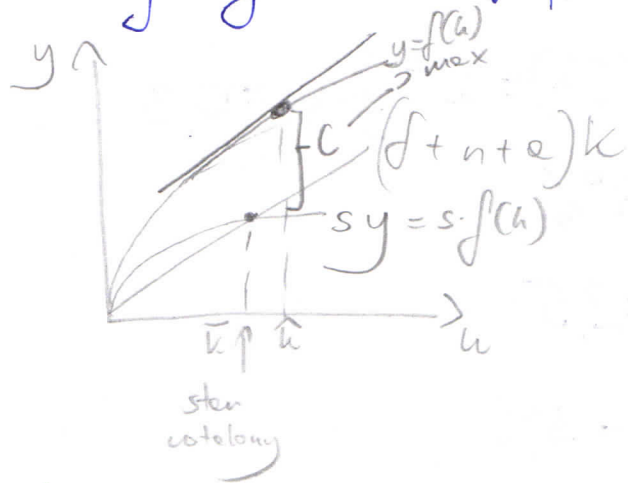 y
y = f(k)
max
C
(δ + n + a) k
sy = s·f(k)
k̄
k̂
k
stan
ustalony